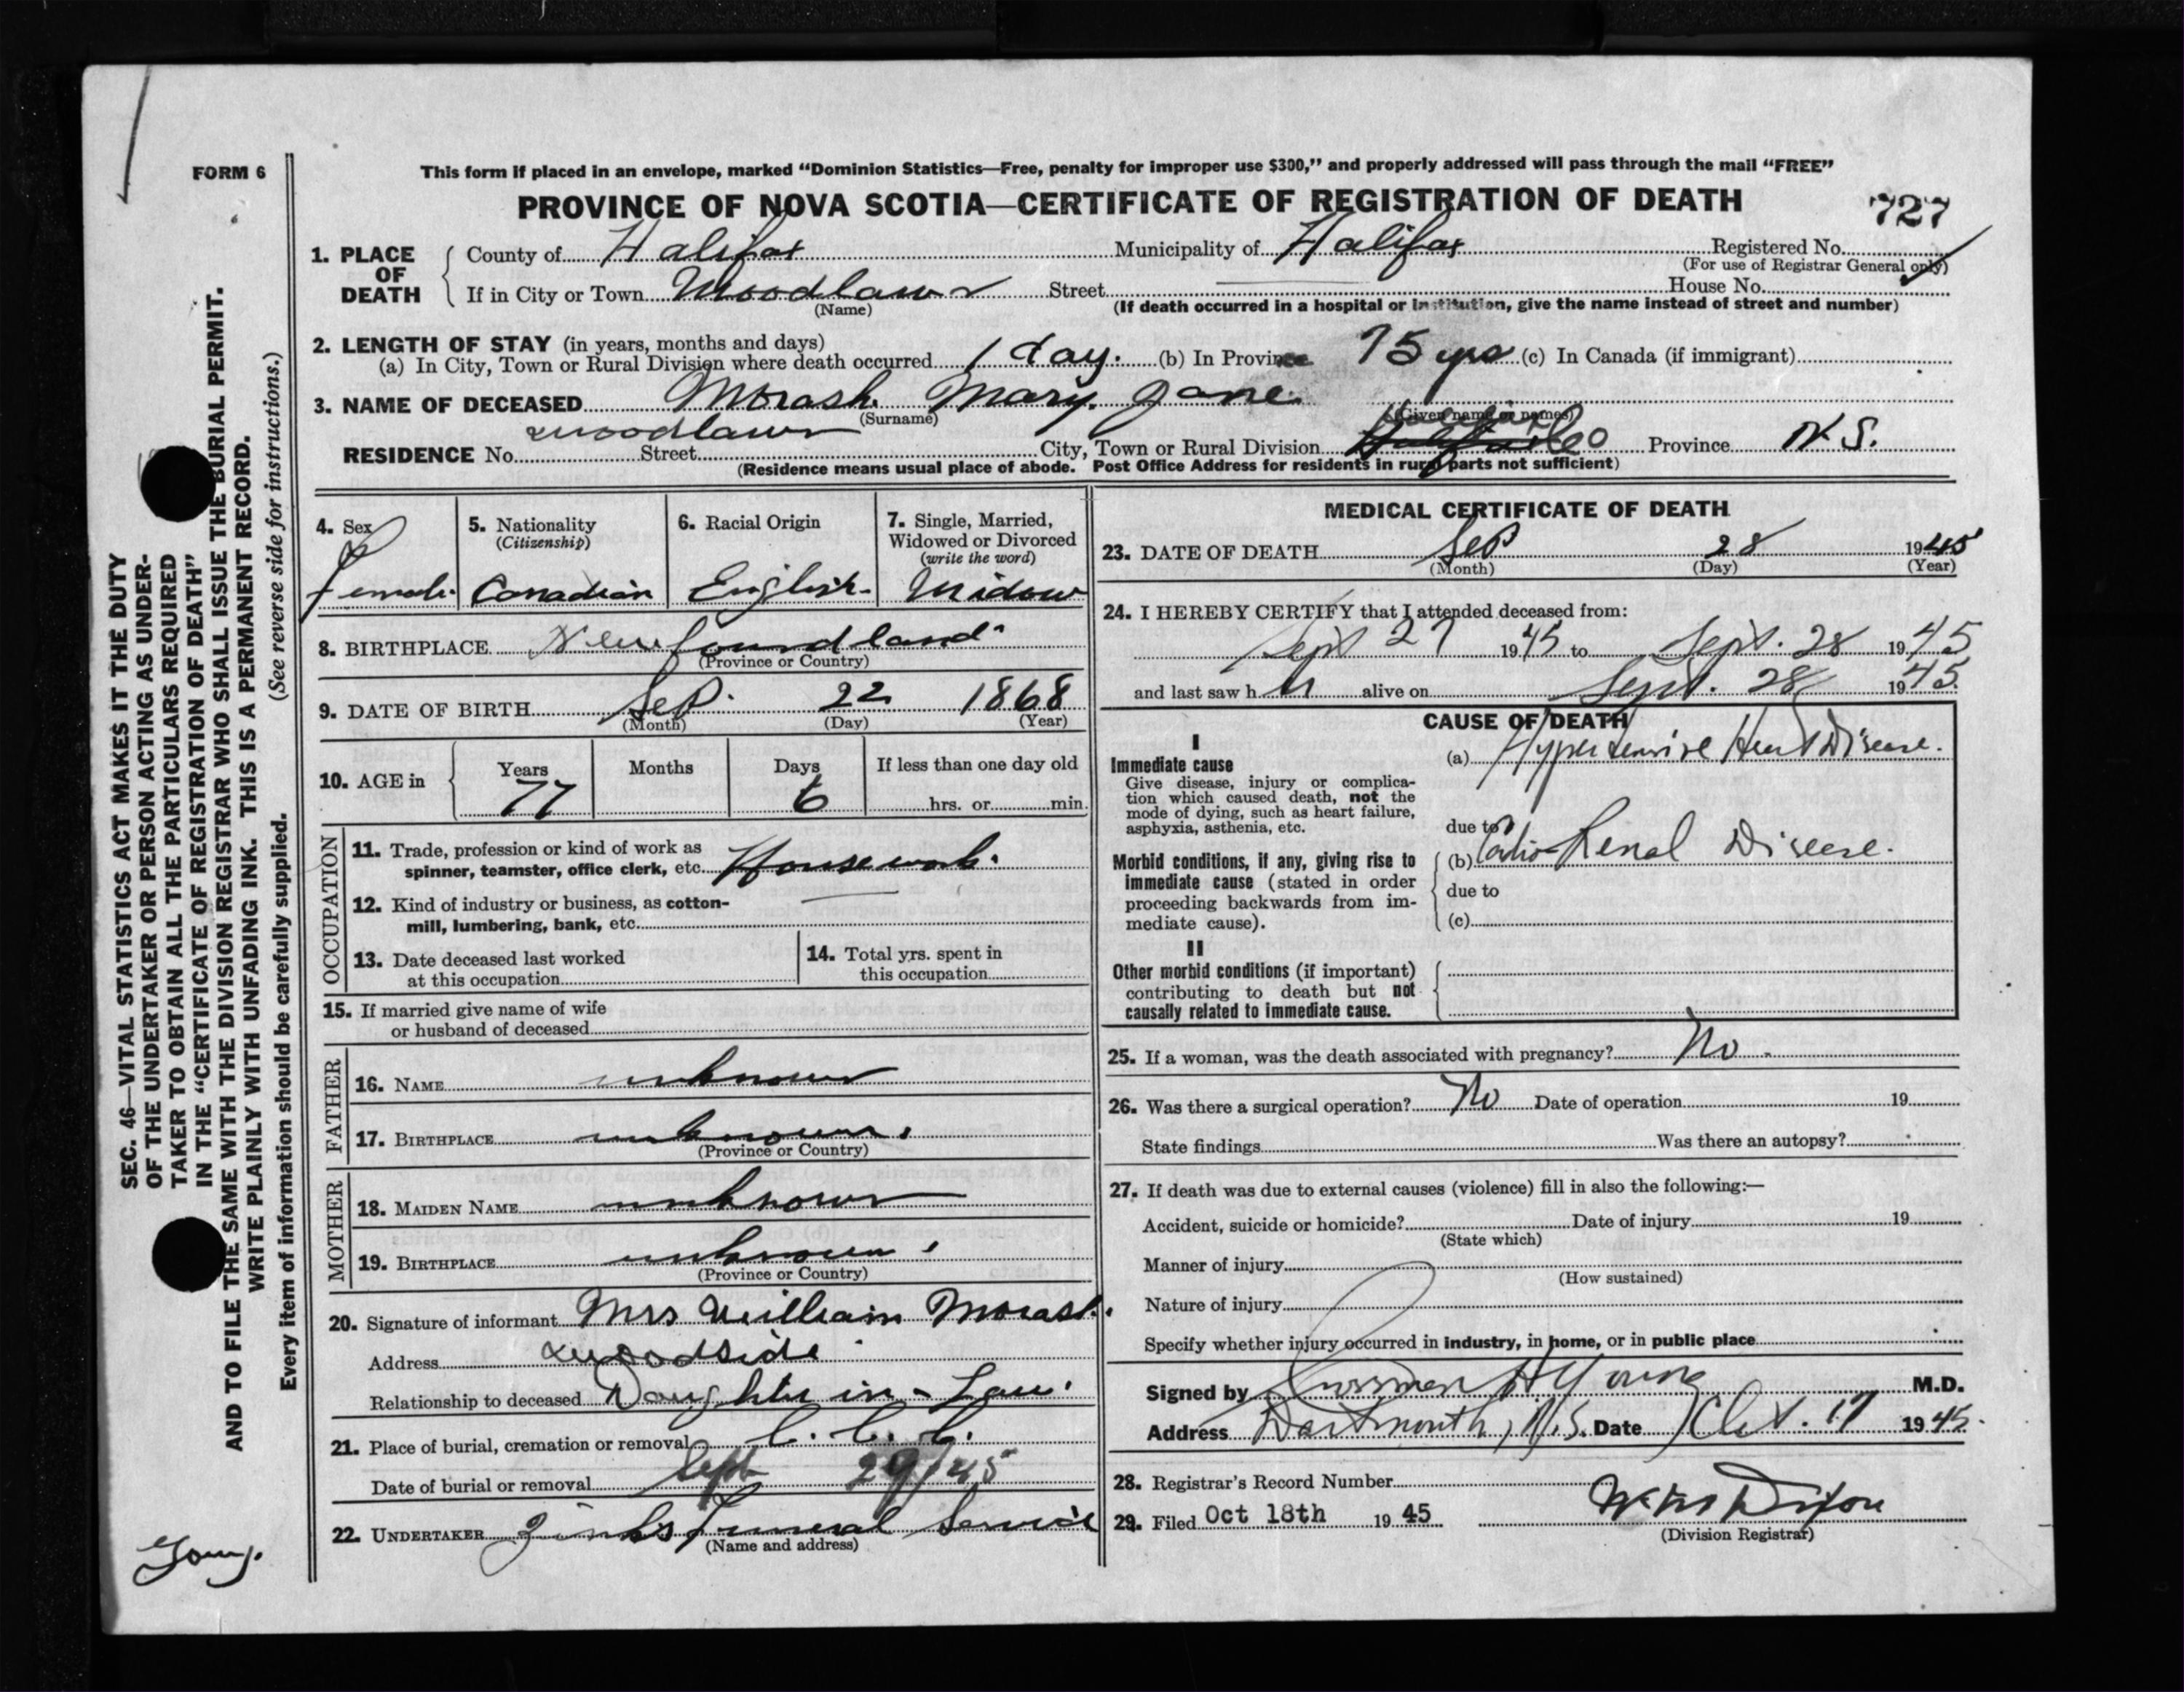 FORM 6
This form if placed in an envelope, marked “Dominion Statistics—Free, penalty for improper use $300,” and properly addressed will pass through the mail “FREE”
PROVINCE OF NOVA SCOTIA—CERTIFICATE OF REGISTRATION OF DEATH
727
1. PLACE OF DEATH
County of Halifax Municipality of Halifax Registered No.
(For use of Registrar General only)
If in City or Town Woodlawn Street House No.
(Name) (If death occurred in a hospital or institution, give the name instead of street and number)
2. LENGTH OF STAY (in years, months and days)
(a) In City, Town or Rural Division where death occurred 1 day. (b) In Province 75 yrs (c) In Canada (if immigrant)
3. NAME OF DECEASED Morash Mary Jane
(Surname) (Given name or names)
RESIDENCE No. Woodlawn Street City, Town or Rural Division Halifax Co Province N.S.
(Residence means usual place of abode. Post Office Address for residents in rural parts not sufficient)
4. Sex
Female
5. Nationality
(Citizenship)
Canadian
6. Racial Origin
English
7. Single, Married,
Widowed or Divorced
(write the word)
Widow
8. BIRTHPLACE Newfoundland
(Province or Country)
9. DATE OF BIRTH Sep. 22 1868
(Month) (Day) (Year)
10. AGE in
Years Months Days If less than one day old
77 6 hrs. or min.
OCCUPATION
11. Trade, profession or kind of work as
spinner, teamster, office clerk, etc. Housework.
12. Kind of industry or business, as cotton-
mill, lumbering, bank, etc.
13. Date deceased last worked
at this occupation
14. Total yrs. spent in
this occupation
15. If married give name of wife
or husband of deceased
FATHER
16. NAME unknown
17. BIRTHPLACE unknown.
(Province or Country)
MOTHER
18. MAIDEN NAME unknown
19. BIRTHPLACE unknown.
(Province or Country)
20. Signature of informant Mrs William Morash.
Address Woodside
Relationship to deceased Daughter in-Law.
21. Place of burial, cremation or removal C. C. C.
Date of burial or removal Sept 29/45
22. UNDERTAKER Zink's Funeral Service
(Name and address)
MEDICAL CERTIFICATE OF DEATH
23. DATE OF DEATH Sep 28 1945
(Month) (Day) (Year)
24. I HEREBY CERTIFY that I attended deceased from:
Sept 27 1945 to Sept. 28 1945
and last saw h er alive on Sept. 28 1945.
CAUSE OF DEATH
I
Immediate cause
Give disease, injury or complica-
tion which caused death, not the
mode of dying, such as heart failure,
asphyxia, asthenia, etc.
(a) Hypertensive Heart Disease.
due to
Morbid conditions, if any, giving rise to
immediate cause (stated in order
proceeding backwards from im-
mediate cause).
(b) Cardio-Renal Disease.
due to
(c)
II
Other morbid conditions (if important)
contributing to death but not
causally related to immediate cause.
25. If a woman, was the death associated with pregnancy? No.
26. Was there a surgical operation? No Date of operation 19
State findings Was there an autopsy?
27. If death was due to external causes (violence) fill in also the following:—
Accident, suicide or homicide? Date of injury 19
(State which)
Manner of injury
(How sustained)
Nature of injury
Specify whether injury occurred in industry, in home, or in public place
Signed by H Young M.D.
Address Dartmouth, N.S. Date Oct. 17 1945.
28. Registrar's Record Number
29. Filed Oct 18th 19 45 Dixon
(Division Registrar)
SEC. 46—VITAL STATISTICS ACT MAKES IT THE DUTY
OF THE UNDERTAKER OR PERSON ACTING AS UNDER-
TAKER TO OBTAIN ALL THE PARTICULARS REQUIRED
IN THE “CERTIFICATE OF REGISTRATION OF DEATH”
AND TO FILE THE SAME WITH THE DIVISION REGISTRAR WHO SHALL ISSUE THE BURIAL PERMIT.
WRITE PLAINLY WITH UNFADING INK. THIS IS A PERMANENT RECORD.
Every item of information should be carefully supplied. (See reverse side for instructions.)